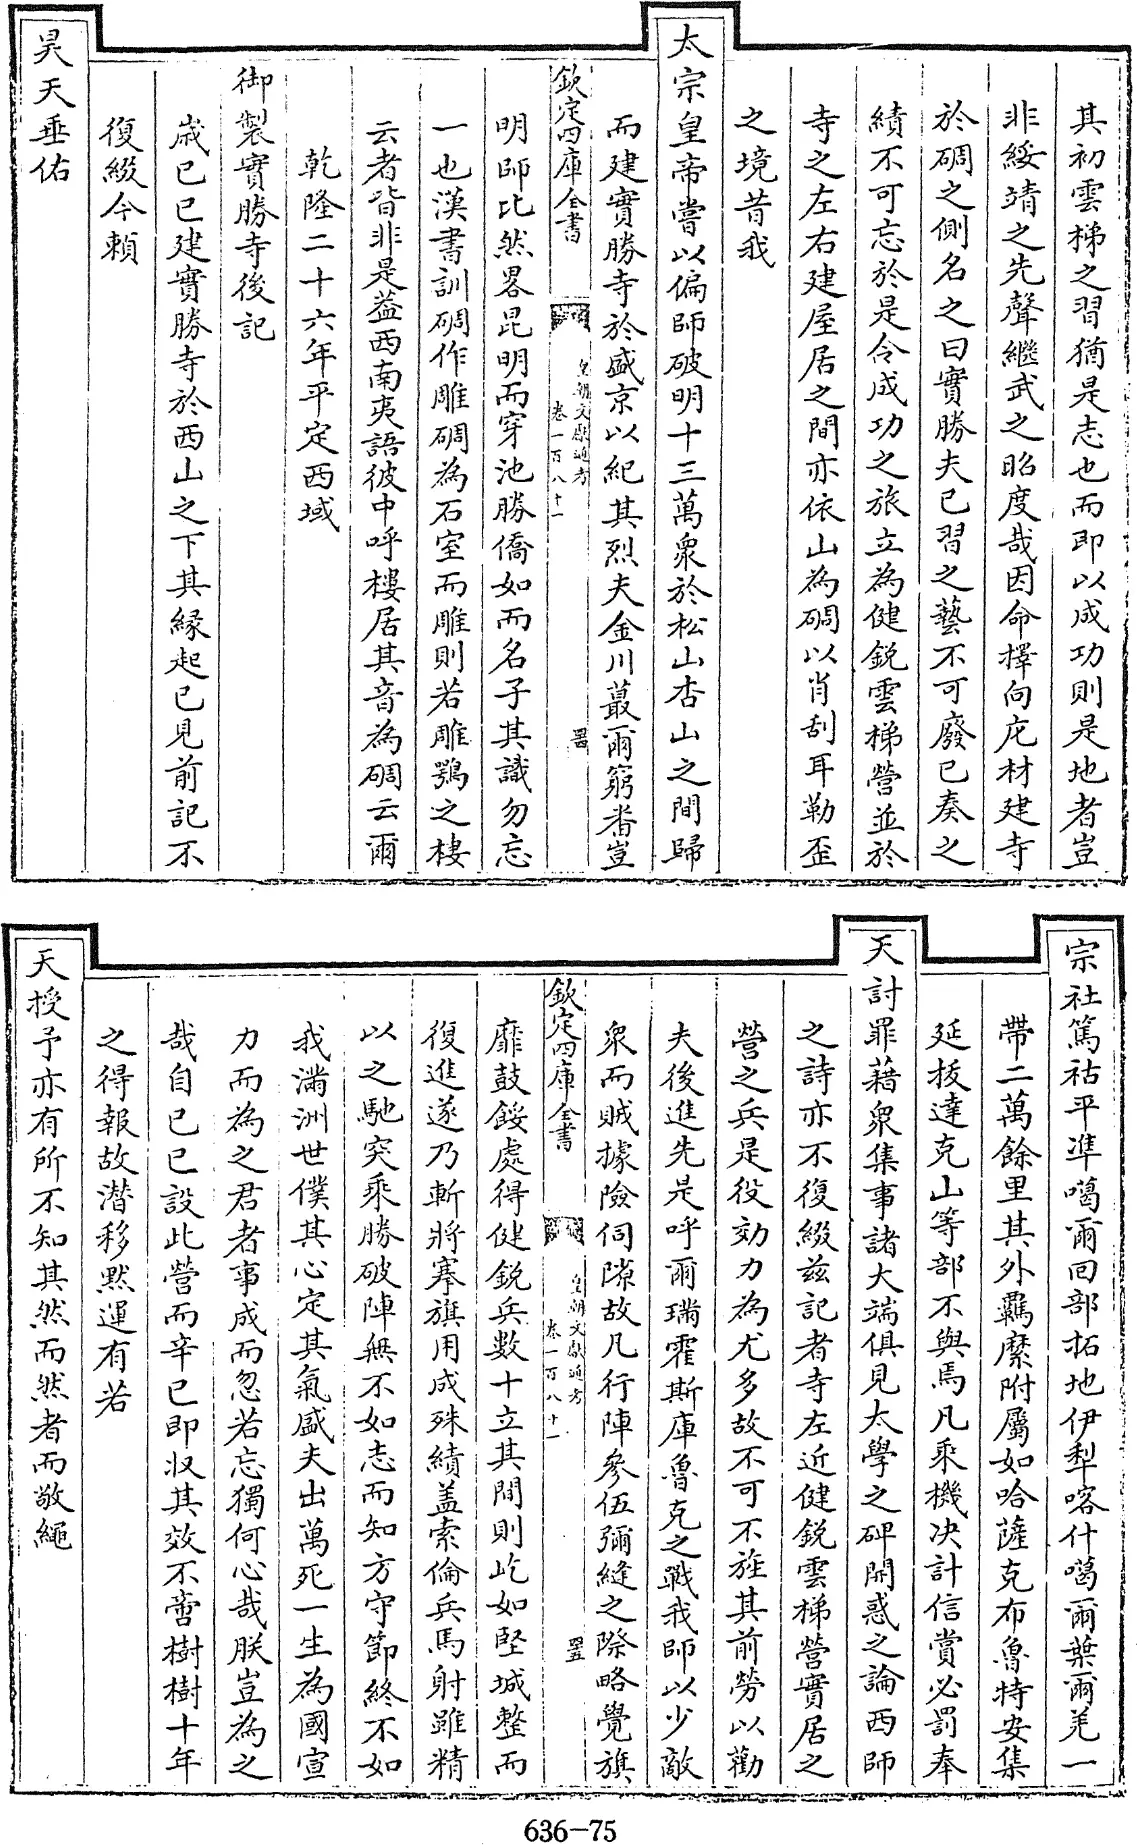 其初雲梯之習猶是志也而即以成功則是地者豈
非綏靖之先聲繼武之昭度哉因命擇向庀材建寺
於碉之側名之曰實勝夫已習之藝不可廢已奏之
績不可忘於是合成功之旅立為健銳雲梯營並於
寺之左右建屋居之間亦依山為碉以肖刮耳勒歪
之境昔我
太宗皇帝嘗以偏師破明十三萬衆於松山杏山之間歸
而建實勝寺於盛京以紀其烈夫金川蕞爾窮番豈
欽定四庫全書
皇朝文獻通考
卷一百八十一
罟
明師比然畧昆明而穿池勝僑如而名子其識勿忘
一也漢書訓碉作雕碉為石室而雕則若雕鶚之棲
云者皆非是葢西南夷語彼中呼樓居其音為碉云爾
乾隆二十六年平定西域
御製實勝寺後記
嵗已巳建實勝寺於西山之下其縁起已見前記不
復綴今頼
昊天垂佑
宗社篤祜平準噶爾回部拓地伊犁喀什噶爾葉爾羌一
帶二萬餘里其外羈縻附屬如哈薩克布魯特安集
延拔達克山等部不與焉凡乘機决計信賞必罰奉
天討罪藉衆集事諸大端俱見太學之碑開惑之論西師
之詩亦不復綴兹記者寺左近健銳雲梯營實居之
營之兵是役効力為尤多故不可不旌其前勞以勸
夫後進先是呼爾璊霍斯庫魯克之戰我師以少敵
衆而賊據險伺隙故凡行陣參伍彌縫之際略覺旗
欽定四庫全書
皇朝文獻通考
卷一百八十一
靡鼓餒處得健銳兵數十立其間則屹如堅城整而
復進遂乃斬將搴旗用成殊績盖索倫兵馬射雖精
以之馳突乘勝破陣無不如志而知方守節終不如
我滿洲世僕其心定其氣盛夫出萬死一生為國宣
力而為之君者事成而忽若忘獨何心哉朕豈為之
哉自己巳設此營而辛巳即収其效不啻樹樹十年
之得報故潜移黙運有若
天授予亦有所不知其然而然者而敬繩
636-75